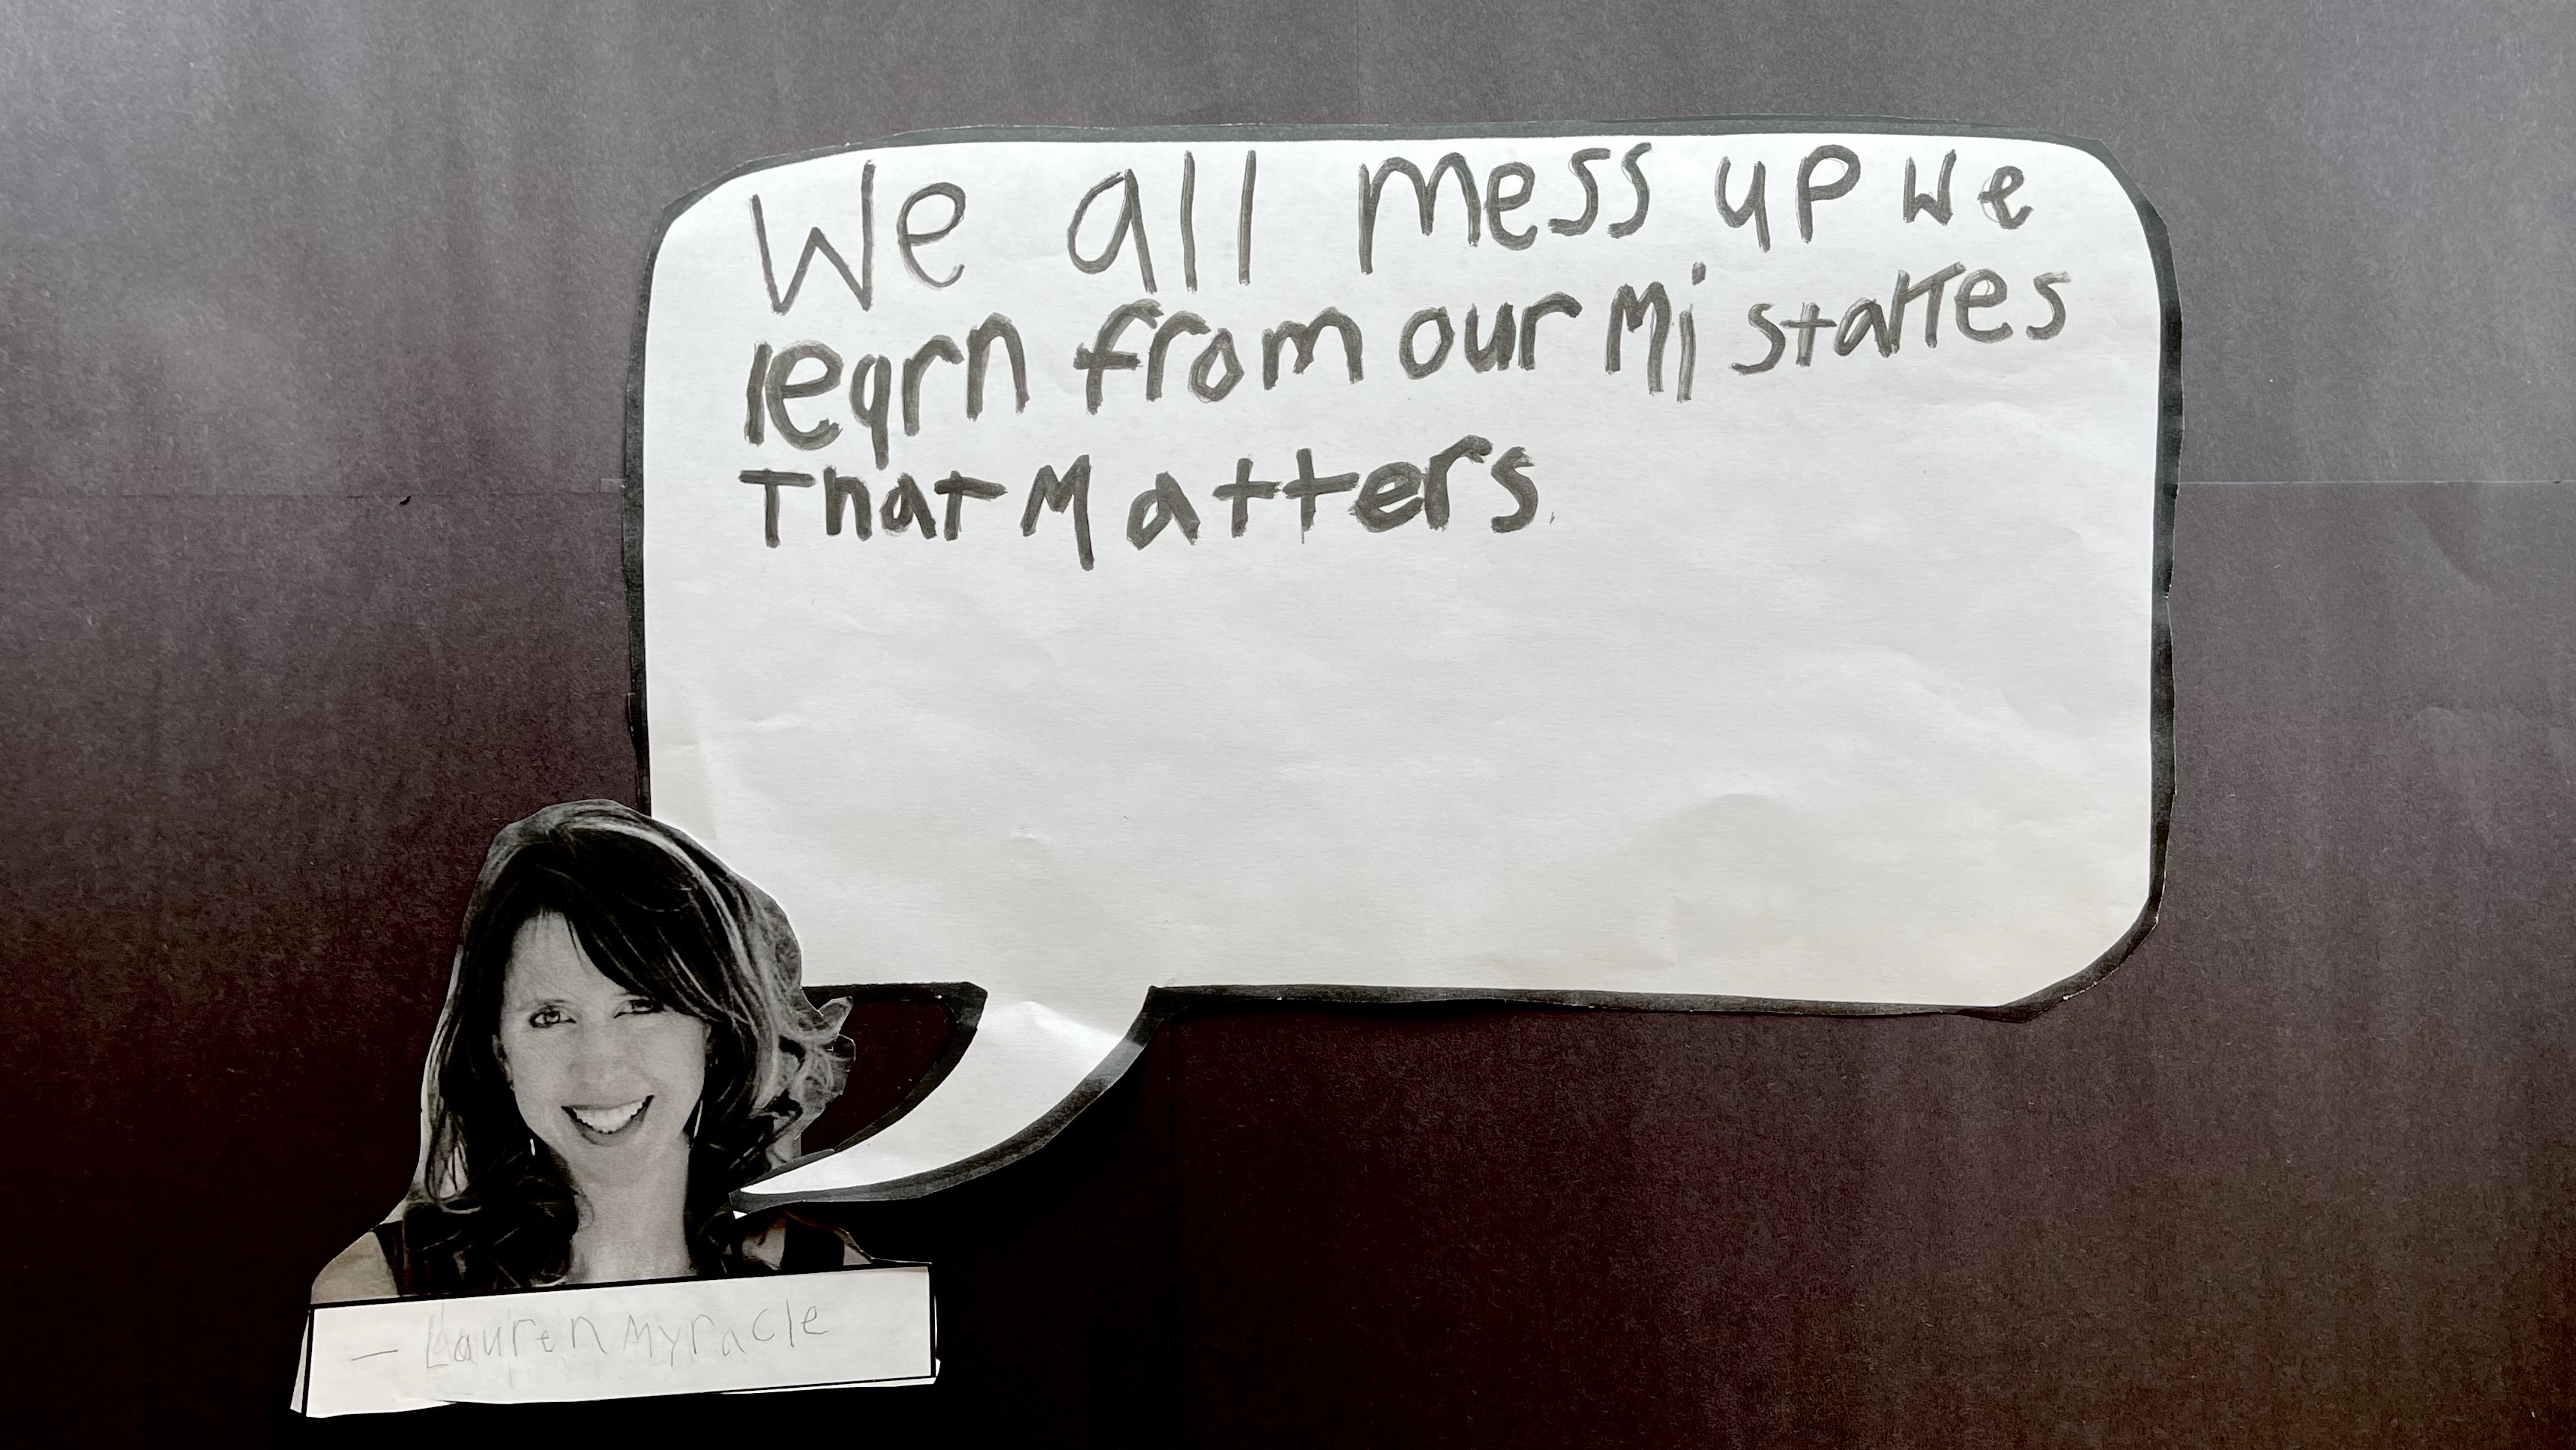 We all mess up We
learn from our Mistakes
That Matters.
— Lauren Myracle